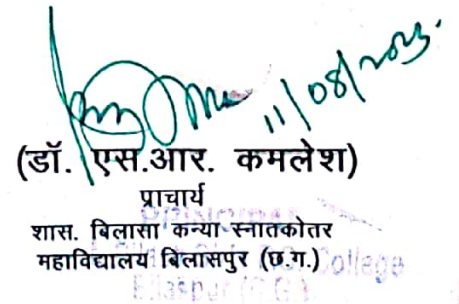 11/08/2023.
(डॉ. एस.आर. कमलेश)
प्राचार्य
शास. बिलासा कन्या स्नातकोतर
महाविद्यालय बिलासपुर (छ.ग.)
College
Bilaspur (C.G.)